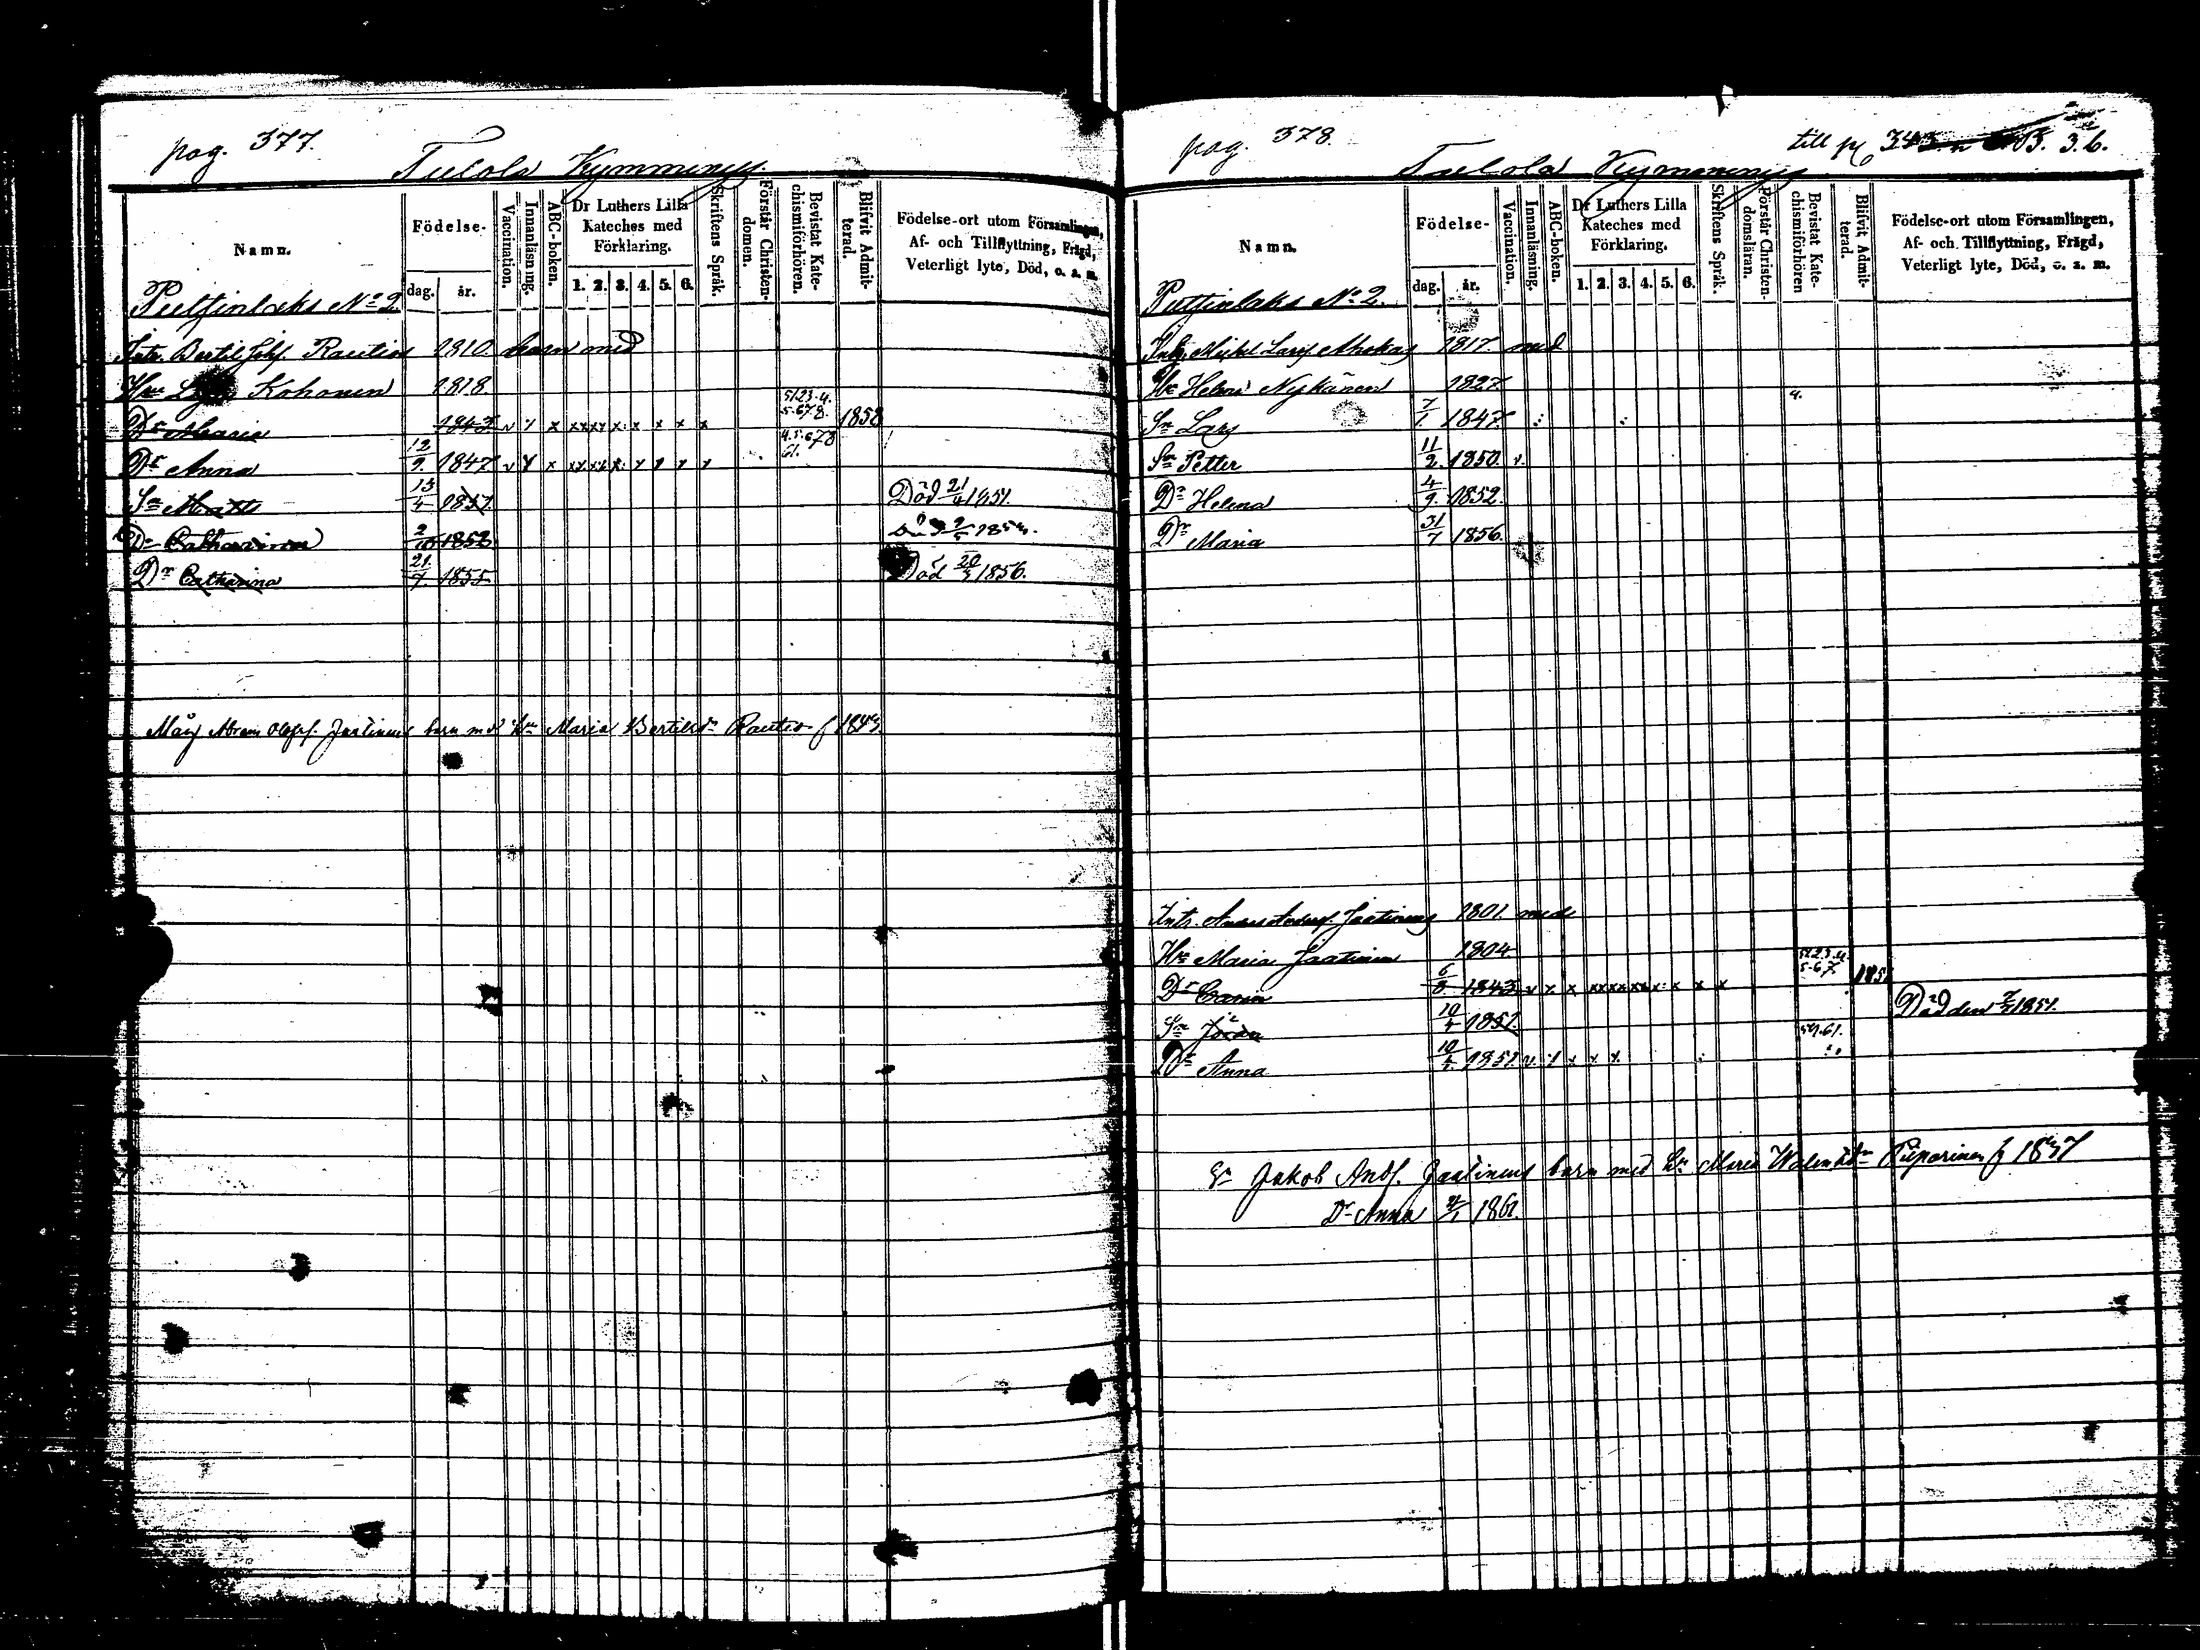 pag. 377.
Tulola Kymmenys.
Namn.
Födelse-
dag. år.
Vaccination.
Innanläsning.
ABC-boken.
Dr Luthers Lilla Kateches med Förklaring.
1. 2. 3. 4. 5. 6.
Skriftens Språk.
Förstår Christendomen.
Bevistat Katechismiförhören.
Blifvit Admitterad.
Födelse-ort utom Församlingen, Af- och Tillflyttning, Frägd, Veterligt lyte, Död, o. s. m.
Puttinlaks No 2.
Intr. Bertil Rautio 1810. barn med
Hu Kohonen 1818.
51.23.4.
Dr Maria 1843 v x x xxxx x x x x x 5.6.78. 1858
Dr Anna 12/9 1847 v x x xxxx x x x x x 4.5.678 61.
Sn Matts 13/4 1851. Död 21/4 1851.
Dr Catharina 2/10 1852
Dr Catharina 21/7. 1855. Död 20/3 1856.
Måg Abram Olofs. Jaatinen barn med Hu Maria Bertilsdr Rautio f 1843.
pag. 378.
till pg
Tulola Kymmenys
Namn.
Födelse-
dag. år.
Vaccination.
Innanläsning.
ABC-boken.
Dr Luthers Lilla Kateches med Förklaring.
1. 2. 3. 4. 5. 6.
Skriftens Språk.
Förstår Christendomsläran.
Bevistat Katechismiförhören
Blifvit Admitterad.
Födelse-ort utom Församlingen, Af- och Tillflyttning, Frägd, Veterligt lyte, Död, o. s. m.
Puttinlaks No 2.
Michel Lars. Ahokas 1817. med
Hu Helena Nykänen 1827.
Sn Lars 7/1. 1847.
Sn Petter 11/2. 1850. v.
Dr Helena 4/9. 1852.
Dr Maria 31/7 1856.
Intr. Anders Anders. Jaatinen 1801. med
Hu Maria Jaatinen 1804
51.23.4.
Dr Carin 6/8. 1843 v x x xxxxxx x x x x 5.6.7.
Sn Jöran 10/4 1851. Död den 7/7 1851.
Dr Anna 10/4. 1851. v x x x x 59.61.
Sn Jakob And. Jaatinen barn med Hu Maria Piiparinen f 1837
Dr Anna 1861.